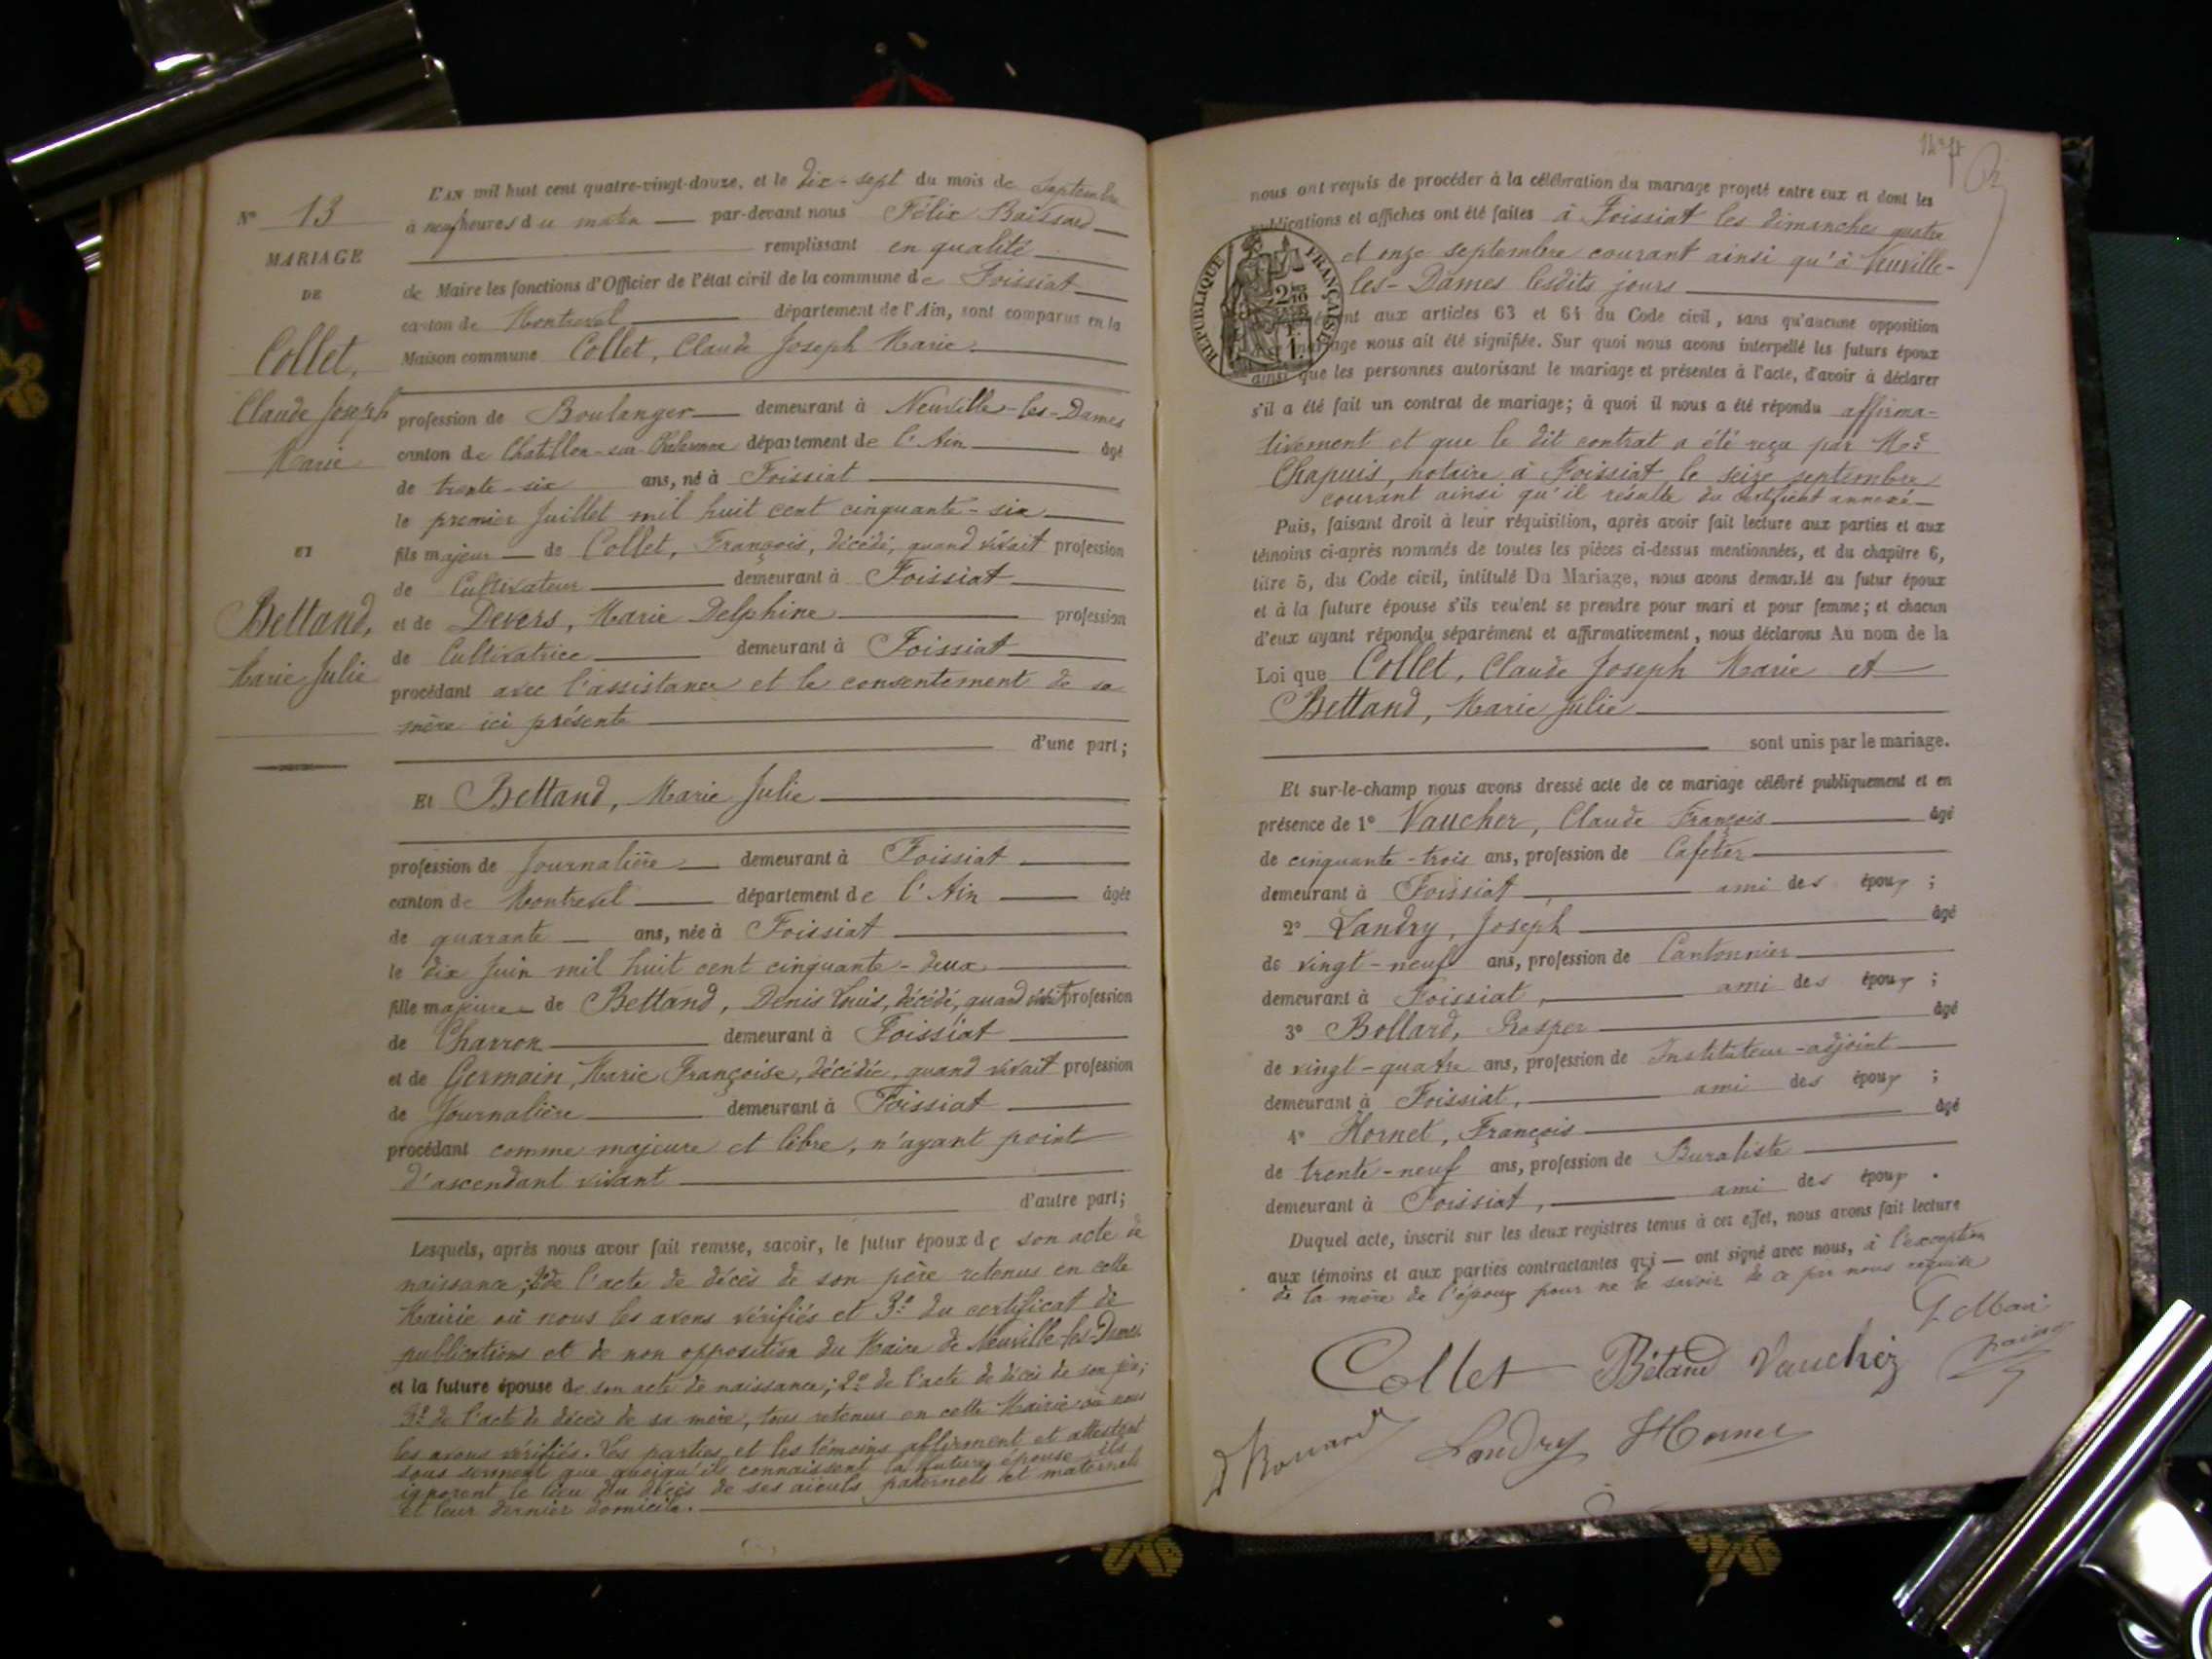 L'AN mil huit cent quatre-vingt-douze, et le dix-sept du mois de Septembre
à neuf heures du matin par-devant nous Félix
remplissant en qualité
de Maire les fonctions d'Officier de l'état civil de la commune de Foissiat
canton de Montrevel département de l'Ain, sont comparus en la
Maison commune Collet, Claude Joseph Marie
N° 13
MARIAGE
DE
Collet,
Claude Joseph
Marie
ET
Bettand,
Marie Julie
profession de Boulanger demeurant à Neuville-les-Dames
canton de Chatillon-sur-Chalaronne département de l'Ain âgé
de trente-six ans, né à Foissiat
le premier Juillet mil huit cent cinquante-six
fils majeur de Collet, François, décédé, quand vivait profession
de Cultivateur demeurant à Foissiat
et de Devers, Marie Delphine profession
de Cultivatrice demeurant à Foissiat
procédant avec l'assistance et le consentement de sa
mère ici présente
d'une part;
Et Bettand, Marie Julie
profession de Journalière demeurant à Foissiat
canton de Montrevel département de l'Ain âgée
de quarante ans, née à Foissiat
le dix Juin mil huit cent cinquante-deux
fille majeure de Bettand, Denis Louis, décédé, quand vivait profession
de Charron demeurant à Foissiat
et de Germain, Marie Françoise, décédée, quand vivait profession
de Journalière demeurant à Foissiat
procédant comme majeure et libre, n'ayant point
d'ascendant vivant
d'autre part;
Lesquels, après nous avoir fait remise, savoir, le futur époux de son acte de
naissance; 2° de l'acte de décès de son père retenus en cette
Mairie où nous les avons vérifiés et 3° du certificat de
publications et de non opposition du Maire de Neuville-les-Dames
et la future épouse de son acte de naissance; 2° de l'acte de décès de son père;
3° de l'acte de décès de sa mère, tous retenus en cette Mairie où nous
les avons vérifiés. Les parties et les témoins affirment et attestent
sous serment que quoiqu'ils connaissent la future épouse ils
ignorent le lieu du décès de ses aïeuls paternels et maternels
et leur dernier domicile.
nous ont requis de procéder à la célébration du mariage projeté entre eux et dont les
publications et affiches ont été faites à Foissiat les dimanches quatre
et onze septembre courant ainsi qu'à Neuville-
les-Dames lesdits jours
RÉPUBLIQUE FRANÇAISE
aux articles 63 et 64 du Code civil, sans qu'aucune opposition
mariage nous ait été signifiée. Sur quoi nous avons interpellé les futurs époux
ainsi que les personnes autorisant le mariage et présentes à l'acte, d'avoir à déclarer
s'il a été fait un contrat de mariage; à quoi il nous a été répondu affirma-
tivement et que le dit contrat a été reçu par Me
Chapuis, notaire à Foissiat le seize septembre
courant ainsi qu'il résulte du certificat annexé
Puis, faisant droit à leur réquisition, après avoir fait lecture aux parties et aux
témoins ci-après nommés de toutes les pièces ci-dessus mentionnées, et du chapitre 6,
titre 5, du Code civil, intitulé Du Mariage, nous avons demandé au futur époux
et à la future épouse s'ils veulent se prendre pour mari et pour femme; et chacun
d'eux ayant répondu séparément et affirmativement, nous déclarons Au nom de la
Loi que Collet, Claude Joseph Marie et
Bettand, Marie Julie
sont unis par le mariage.
Et sur-le-champ nous avons dressé acte de ce mariage célébré publiquement et en
présence de 1° Vaucher, Claude François âgé
de cinquante-trois ans, profession de Cafetier
demeurant à Foissiat ami des époux;
2° Landry, Joseph âgé
de vingt-neuf ans, profession de Cantonnier
demeurant à Foissiat, ami des époux;
3° Bollard, Prosper âgé
de vingt-quatre ans, profession de Instituteur-adjoint
demeurant à Foissiat, ami des époux;
4° Hornet, François âgé
de trente-neuf ans, profession de Buraliste
demeurant à Foissiat, ami des époux.
Duquel acte, inscrit sur les deux registres tenus à cet effet, nous avons fait lecture
aux témoins et aux parties contractantes qui ont signé avec nous, à l'exception
de la mère de l'époux pour ne le savoir de ce par nous requise
Collet Bétand Vauchez
Landry Hornet